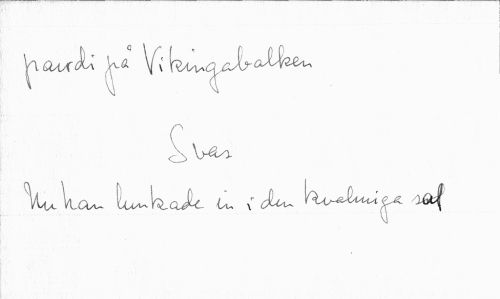 parodi på Vikingabalken
Svar
Nu han lunkade in i den kvalmiga sal